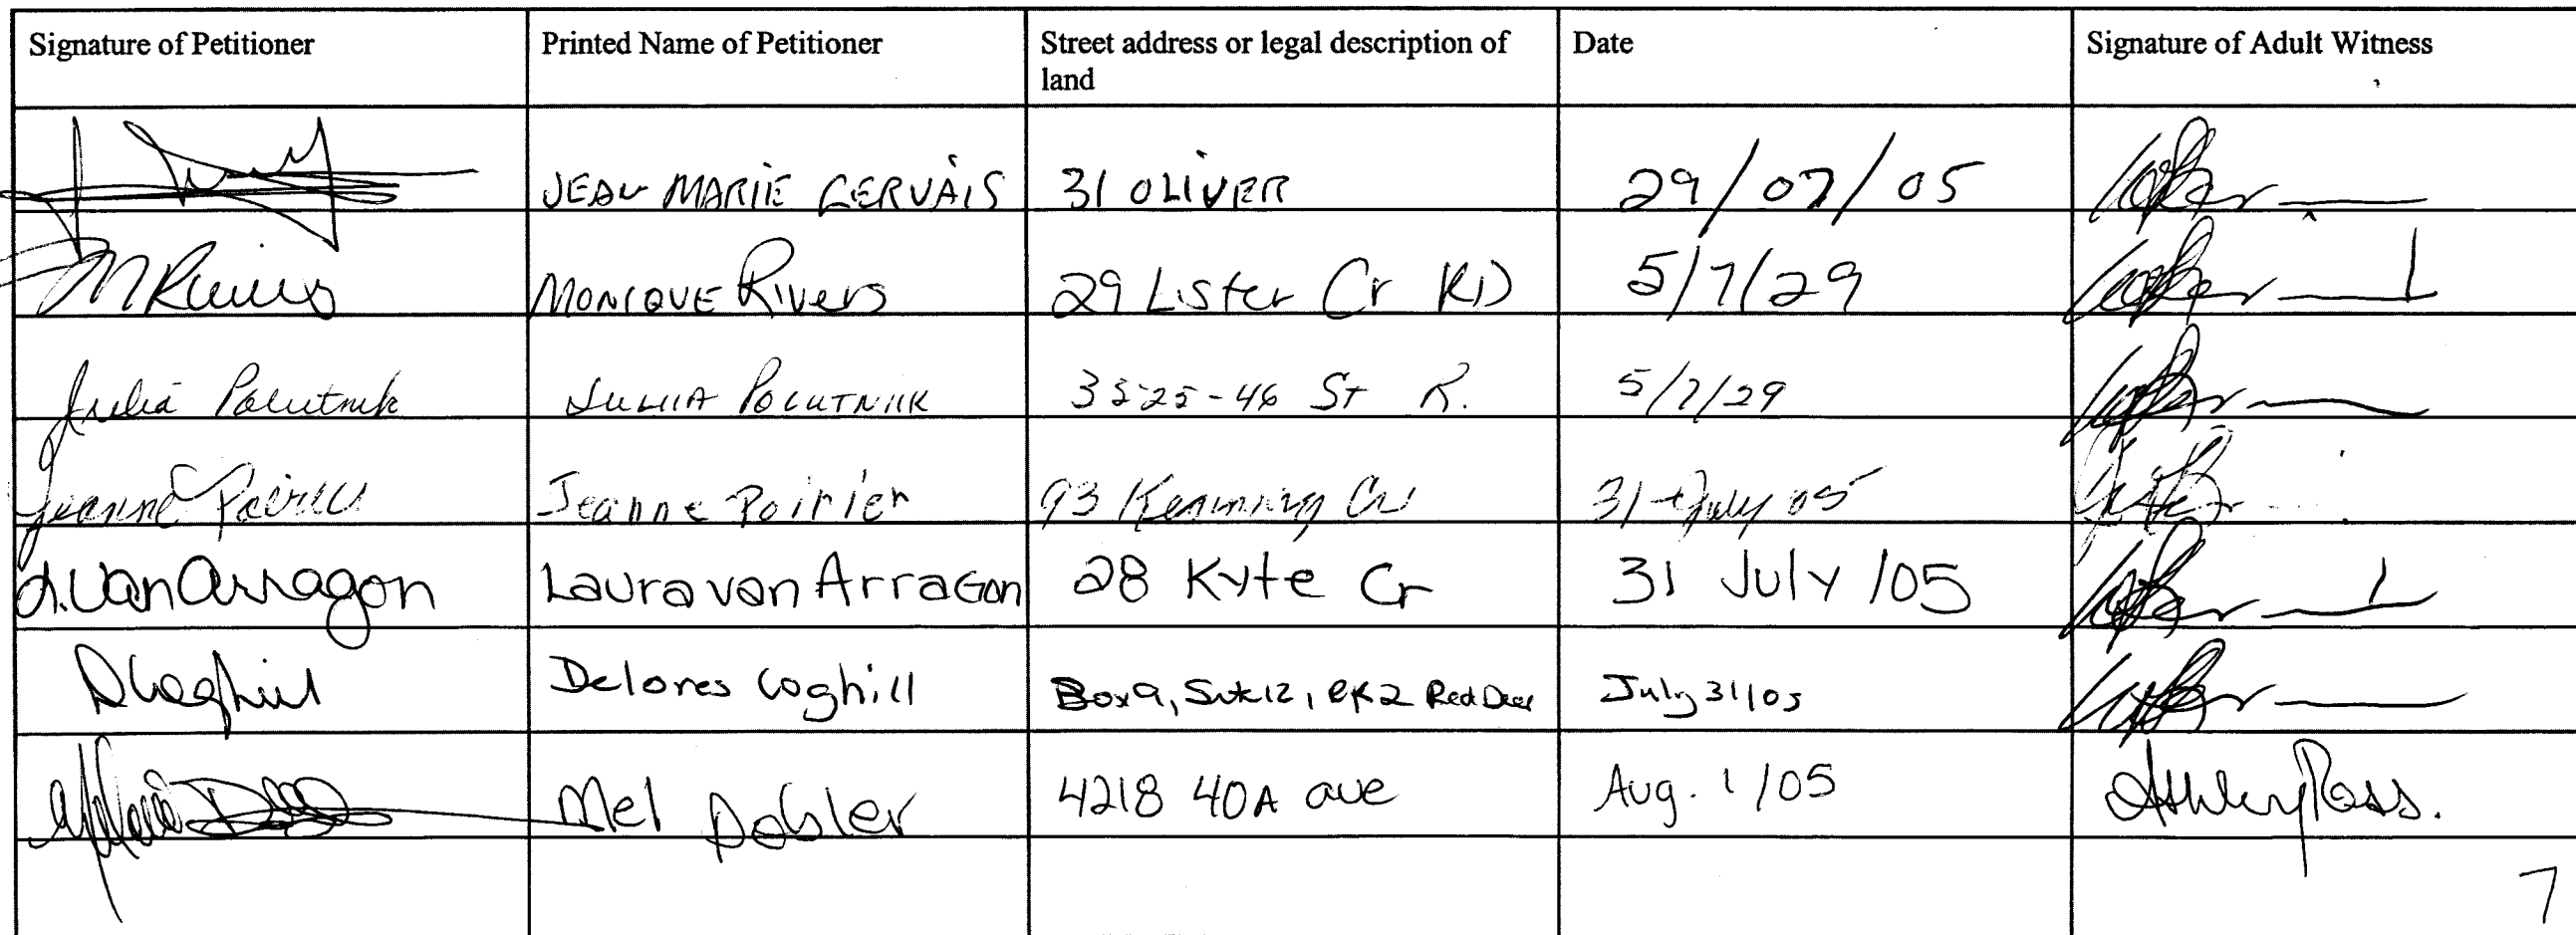 Signature of Petitioner Printed Name of Petitioner Street address or legal description of land Date Signature of Adult Witness
JEAN MARIE GERVAIS 31 OLIVER 29/07/05
M Rivers MONIQUE Rivers 29 Lister Cr RD 5/7/29
Julia Polutnik JULIIA POLUTNIK 3325-46 St R. 5/7/29
Jeanne Poirier Jeanne Poirier 93 Cr 31 July 05
L. van Arragon Laura van Arragon 28 Kyte Cr 31 July /05
D Coghill Delores Coghill Box 9, Suite 12, RR2 Red Deer July 31/05
Mel Dobler 4218 40A ave Aug. 1/05 Ashley Ross.
7